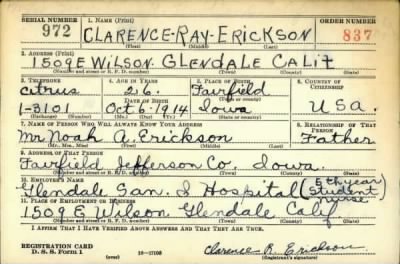 SERIAL NUMBER 1. NAME (Print) ORDER NUMBER
972 CLARENCE-RAY-ERICKSON 837
(First) (Middle) (Last)
2. ADDRESS (Print)
1509 E WILSON GLENDALE CALIF
(Number and street or R. F. D. number) (Town) (County) (State)
3. TELEPHONE 4. AGE IN YEARS 5. PLACE OF BIRTH 6. COUNTRY OF CITIZENSHIP
Citrus 26 Fairfield
DATE OF BIRTH (Town or county)
1-3101 Oct 6, 1914 Iowa USA.
(Exchange) (Number) (Mo.) (Day) (Yr.) (State or country)
7. NAME OF PERSON WHO WILL ALWAYS KNOW YOUR ADDRESS 8. RELATIONSHIP OF THAT PERSON
Mr Noah A. Erickson Father
(Mr., Mrs., Miss) (First) (Middle) (Last)
9. ADDRESS OF THAT PERSON
Fairfield Jefferson Co. Iowa
(Number and street or R. F. D. number) (Town) (County) (State)
10. EMPLOYER'S NAME
Glendale San. & Hospital (5th year student nurse)
11. PLACE OF EMPLOYMENT OR BUSINESS
1509 E Wilson Glendale Calif
(Number and street or R. F. D. number) (Town) (County) (State)
I AFFIRM THAT I HAVE VERIFIED ABOVE ANSWERS AND THAT THEY ARE TRUE.
REGISTRATION CARD
D. S. S. FORM 1 16-17105 Clarence R. Erickson
(Registrant's signature)